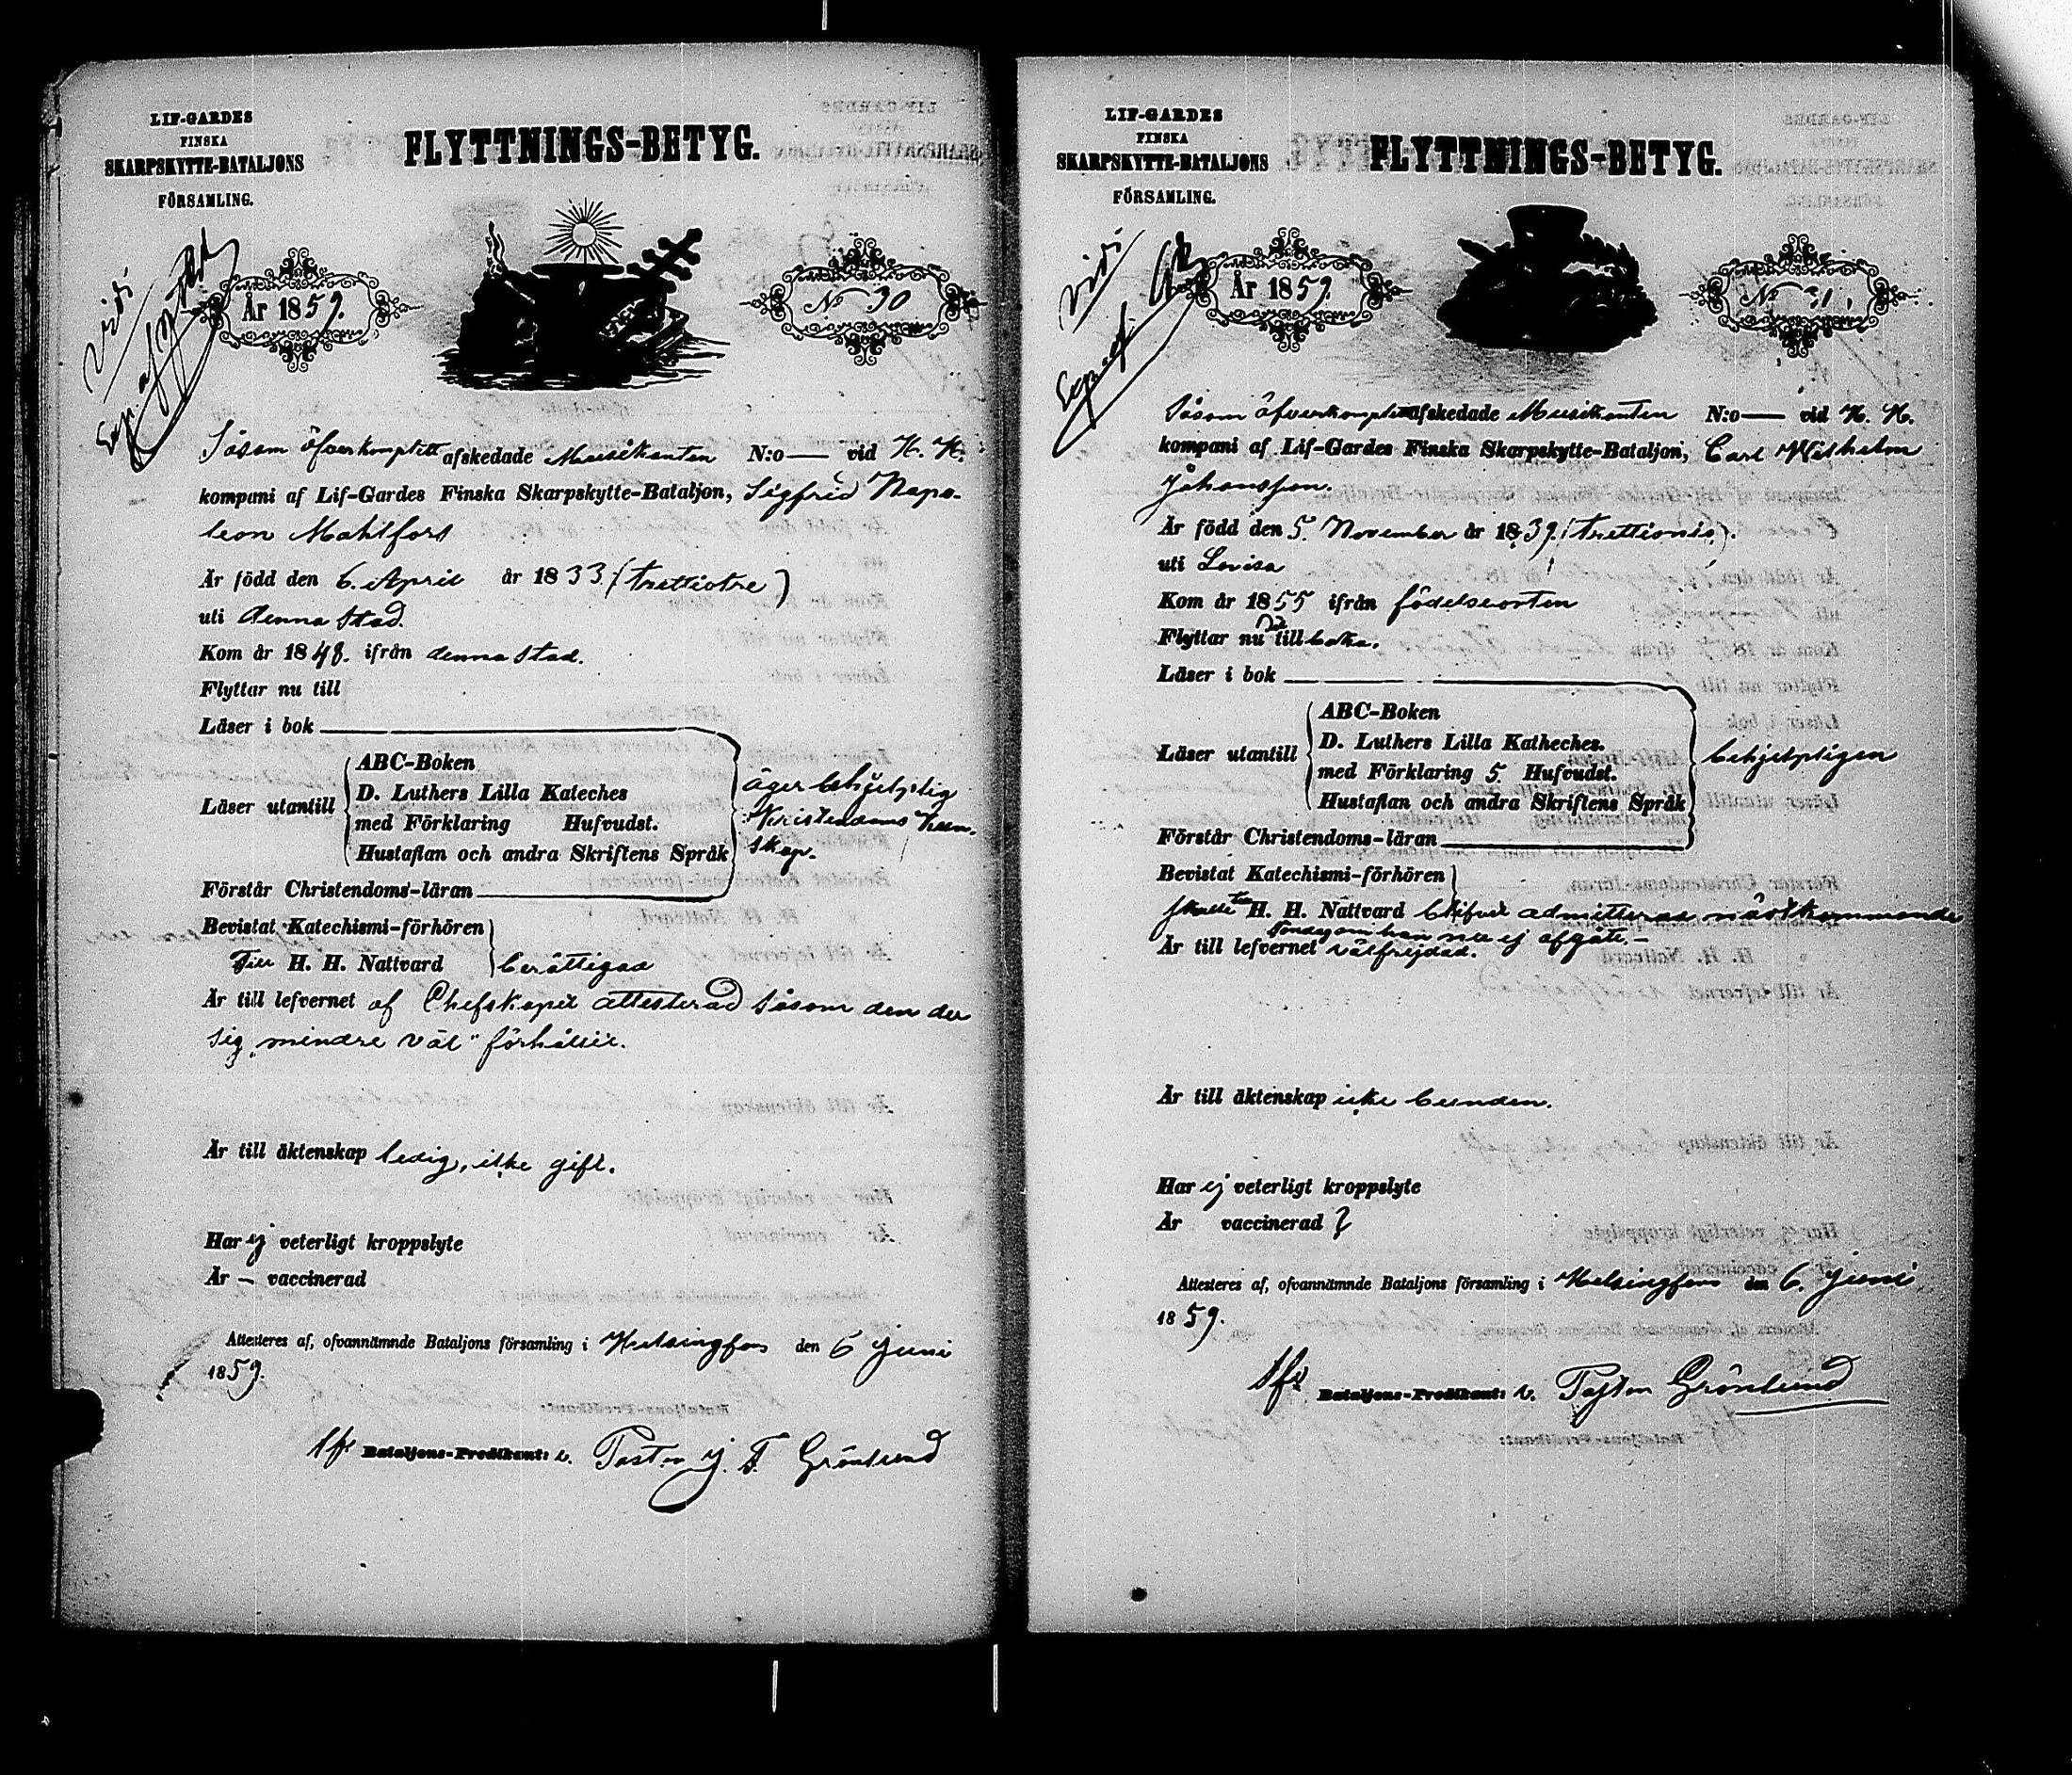 LIF-GARDES
FINSKA
SKARPSKYTTE-BATALJONS
FÖRSAMLING.
FLYTTNINGS-BETYG.
vidi
År 1859.
No 30
Såsom öfverkomplett afskedade Musikanten N:o — vid H. H.
kompani af Lif-Gardes Finska Skarpskytte-Bataljon, Sigfrid Napo-
leon Mahlfors
Är född den 6. April år 1833. (trettiotre)
uti denna stad.
Kom år 1848. ifrån denna stad.
Flyttar nu till
Läser i bok
Läser utantill
ABC-Boken
D. Luthers Lilla Kateches
med Förklaring Hufvudst.
Hustaflan och andra Skriftens Språk
äger behjelplig
Kristendoms kun-
skap.
Förstår Christendoms-läran
Bevistat Katechismi-förhören
Till H. H. Nattvard berättigad
Är till lefvernet af Chefskapet attesterad såsom den der
sig „mindre väl" förhållit.
Är till äktenskap ledig, icke gift.
Har ej veterligt kroppslyte
Är — vaccinerad
Attesteres af, ofvannämnde Bataljons församling i Helsingfors den 6 Juni
1859.
Bataljons-Predikant: v. Pastor J. F. Grönlund
LIF-GARDES
FINSKA
SKARPSKYTTE-BATALJONS
FÖRSAMLING.
FLYTTNINGS-BETYG.
vidi
År 1859.
No 31,
Såsom öfverkomplett afskedade Musikanten N:o — vid H. H.
kompani af Lif-Gardes Finska Skarpskytte-Bataljon, Carl Wilhelm
Johansson.
Är född den 5. November år 1839. (trettionio).
uti Lovisa
Kom år 1855 ifrån födelseorten
Flyttar nu tillbaka.
Läser i bok
Läser utantill
ABC-Boken
D. Luthers Lilla Katheches.
med Förklaring 5. Hufvudst.
Hustaflan och andra Skriftens Språk
behjelpligen
Förstår Christendoms-läran
Bevistat Katechismi-förhören
skulle till H. H. Nattvard blifvit admitterad nästkommande
Söndag om han nu ej afgått.—
Är till lefvernet välfrejdad.
Är till äktenskap icke bunden.
Har ej veterligt kroppslyte
Är vaccinerad ?
Attesteres af, ofvannämnde Bataljons församling i Helsingfors den 6. Juni
1859.
Bataljons-Predikant: v. Pastor Grönlund